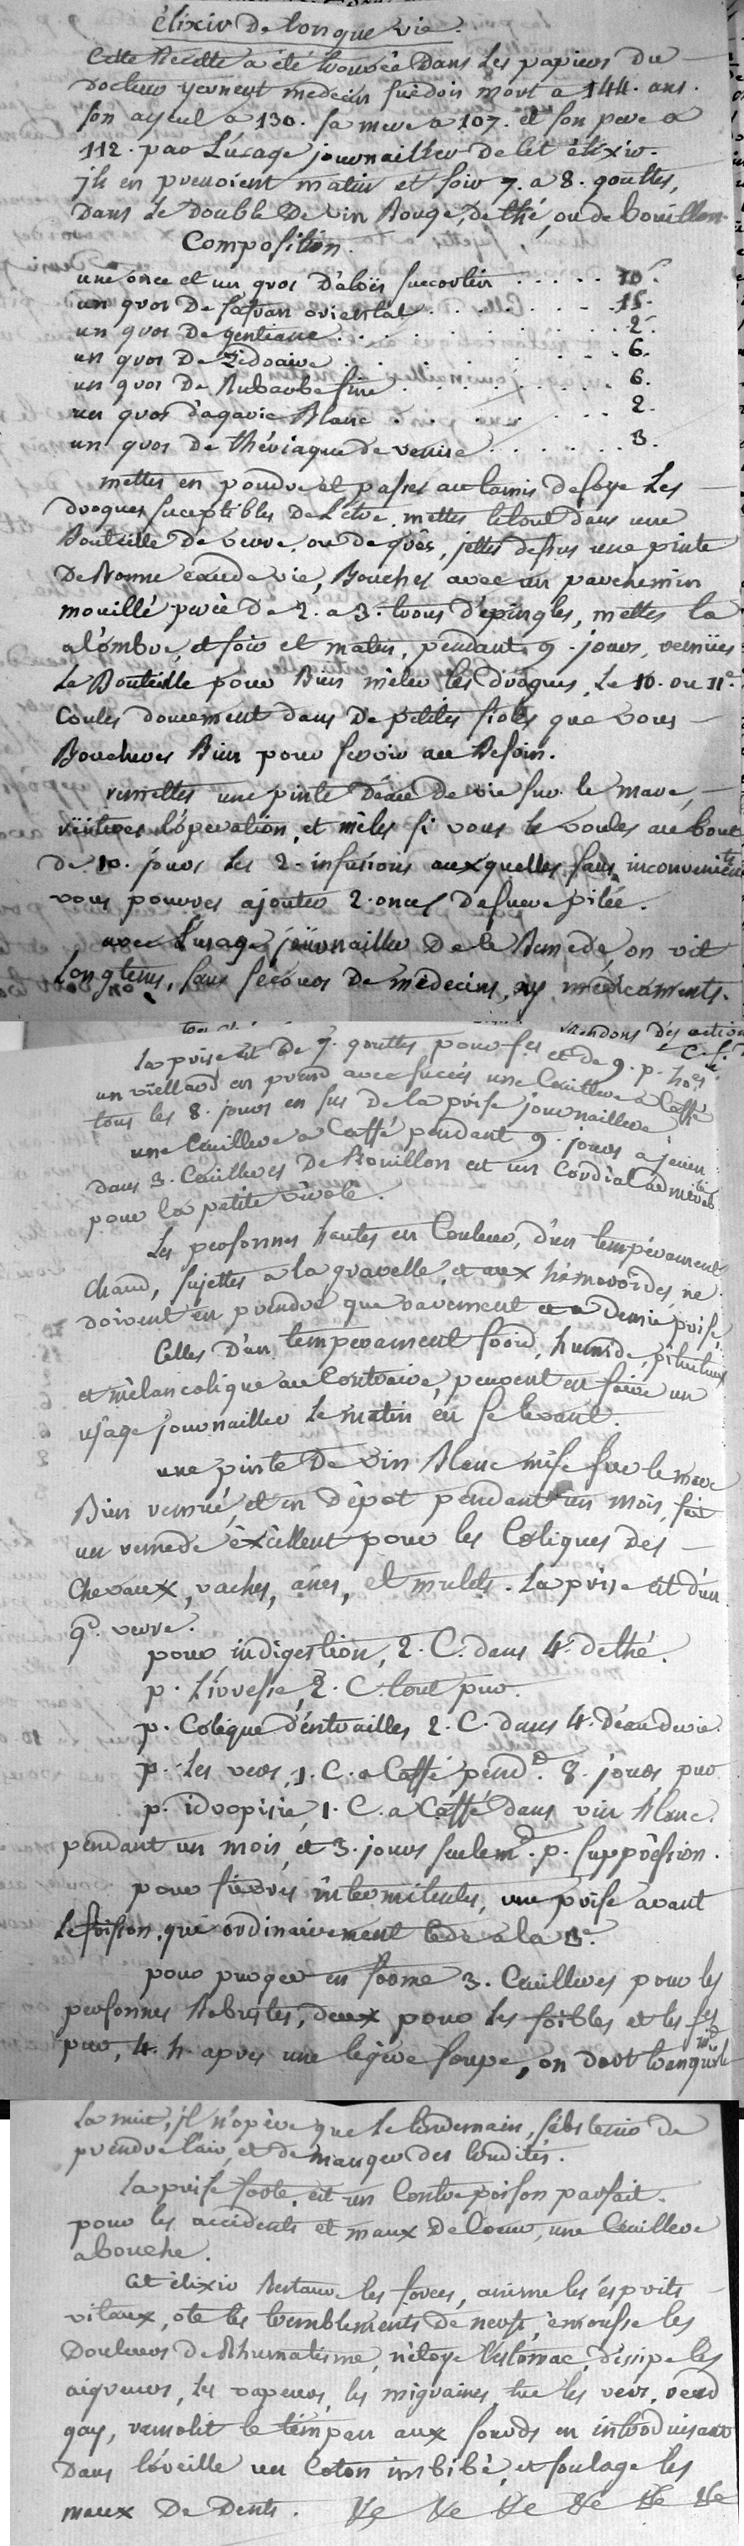 élixir De longue vie.
Cette Recette a été trouvée Dans Les papiers Du
Docteur yernest medecin suedois mort a 144. ans.
son ayeul a 130. sa mere a 107. et son pere a
112. par L'usage journaillier De cet élixir.
jls en prenoient matin et soir 7. a 8. gouttes,
Dans Le Double De vin Rouge, De thé, ou de bouillon.
Composition.
une once et un gros D'aloës succotrin . . . . . 10.
un gros De safran oriental . . . . . . 15.
un gros De gentiane . . . . . . . . . 2.
un gros De Zédoaire . . . . . . . . . 6.
un gros De Rubarbe fine . . . . . . . 6.
un gros d'agaric Blanc . . . . . . . 2.
un gros De thériaque de venise . . . . . . 3.
mettes en poudre et passes au tamis de soye Les
drogues suceptibles De L'être, mettes le tout dans une
Bouteille De verre, ou de grès, jettes dessus une pinte
De Bonne eau de vie, Bouches avec un parchemin
mouillé percé De 2. a 3. trous d'epingles, mettes la
a l'ombre, et soir et matin, pendant 9. jours, remües
La Bouteille pour Bien mêler les drogues, Le 10. ou 11e.
Coules doucement dans De petites fioles que vous
Boucheres Bien pour servir au Besoin.
remettes une pinte D'eau De vie sur le marc,
réïteres l'óperation, et mêles si vous le voules au bout
de 10. jours Les 2. infusions auxquelles sans inconvenients
vous pouvres ajouter 2. onces De sucre pilée.
avec L'usage journaillier De ce Remede, on vit
Longtems, sans secours De médecins, ny médicaments.
La prise est De 7. gouttes pour fes et de 9. p. hoes
un vieillard en prend avec succés une Cuillere a Caffé
tous les 8. jours en sus De la prise journailliere
une Cuillere a Caffé pendant 9. jours a jeun
dans 3. Cuilleres De Bouillon est un Cordial admirable
pour la petite vérole.
Les personnes hautes en Couleur, d'un tempérament
Chaud, sujettes a la gravelle, et aux hémoroïdes, ne
doivent en prendre que rarement et a demie prise,
Celles D'un temperament froid, humide, pituiteux
et mélancolique au Contraire, peuvent en faire un
usage journaillier Le matin en se levant.
une pinte De vin Blanc mise sur le marc
Bien remué, et en Dépot pendant un mois, fait
un remede éxcellent pour les Coliques Des
Chevaux, vaches, anes, et mulets. La prise est d'un
gd. verre.
pour indigestion, 2. C. dans 4. de thé.
p. L'ivresse, 2. C. tout pur.
p. Colique d'entrailles 2. C. dans 4. D'eau de vie.
p. Les vers, 1. C. a Caffé pendt. 8. jours, pur
p. idropisie, 1. C. a Caffé dans vin blanc.
pendant un mois, et 3. jours seulemt. p. suppression.
pour fiévres intermitentes, une prise avant
Le frisson, qui ordinairement cede a la 3e.
pour purger en forme 3. Cuilleres pour les
personnes Robustes, deux pour Les foibles et les fes
pur, 4. h. apres une legere soupe, on dort tranquile
La nuit, jl n'opère que Le lendemain, s'abstenir de
prendre l'air, et de manger des crudités.
La prise forte, est un Contre poison parfait.
pour les accidents et maux De Coeur, une Cuillere
a bouche.
Cet élixir Restaure les forces, anime les ésprits
vitaux, ote les tremblements De nerfs, émousse les
Douleurs De Rhumatisme, nétoye l'estomac, dissipe les
aigreurs, les vapeurs, les migraines, tue les vers, rend
gay, ramolit le timpan aux sourds en introduisant
Dans l'oreille un Coton imbibé, et soulage les
maux De Dents.